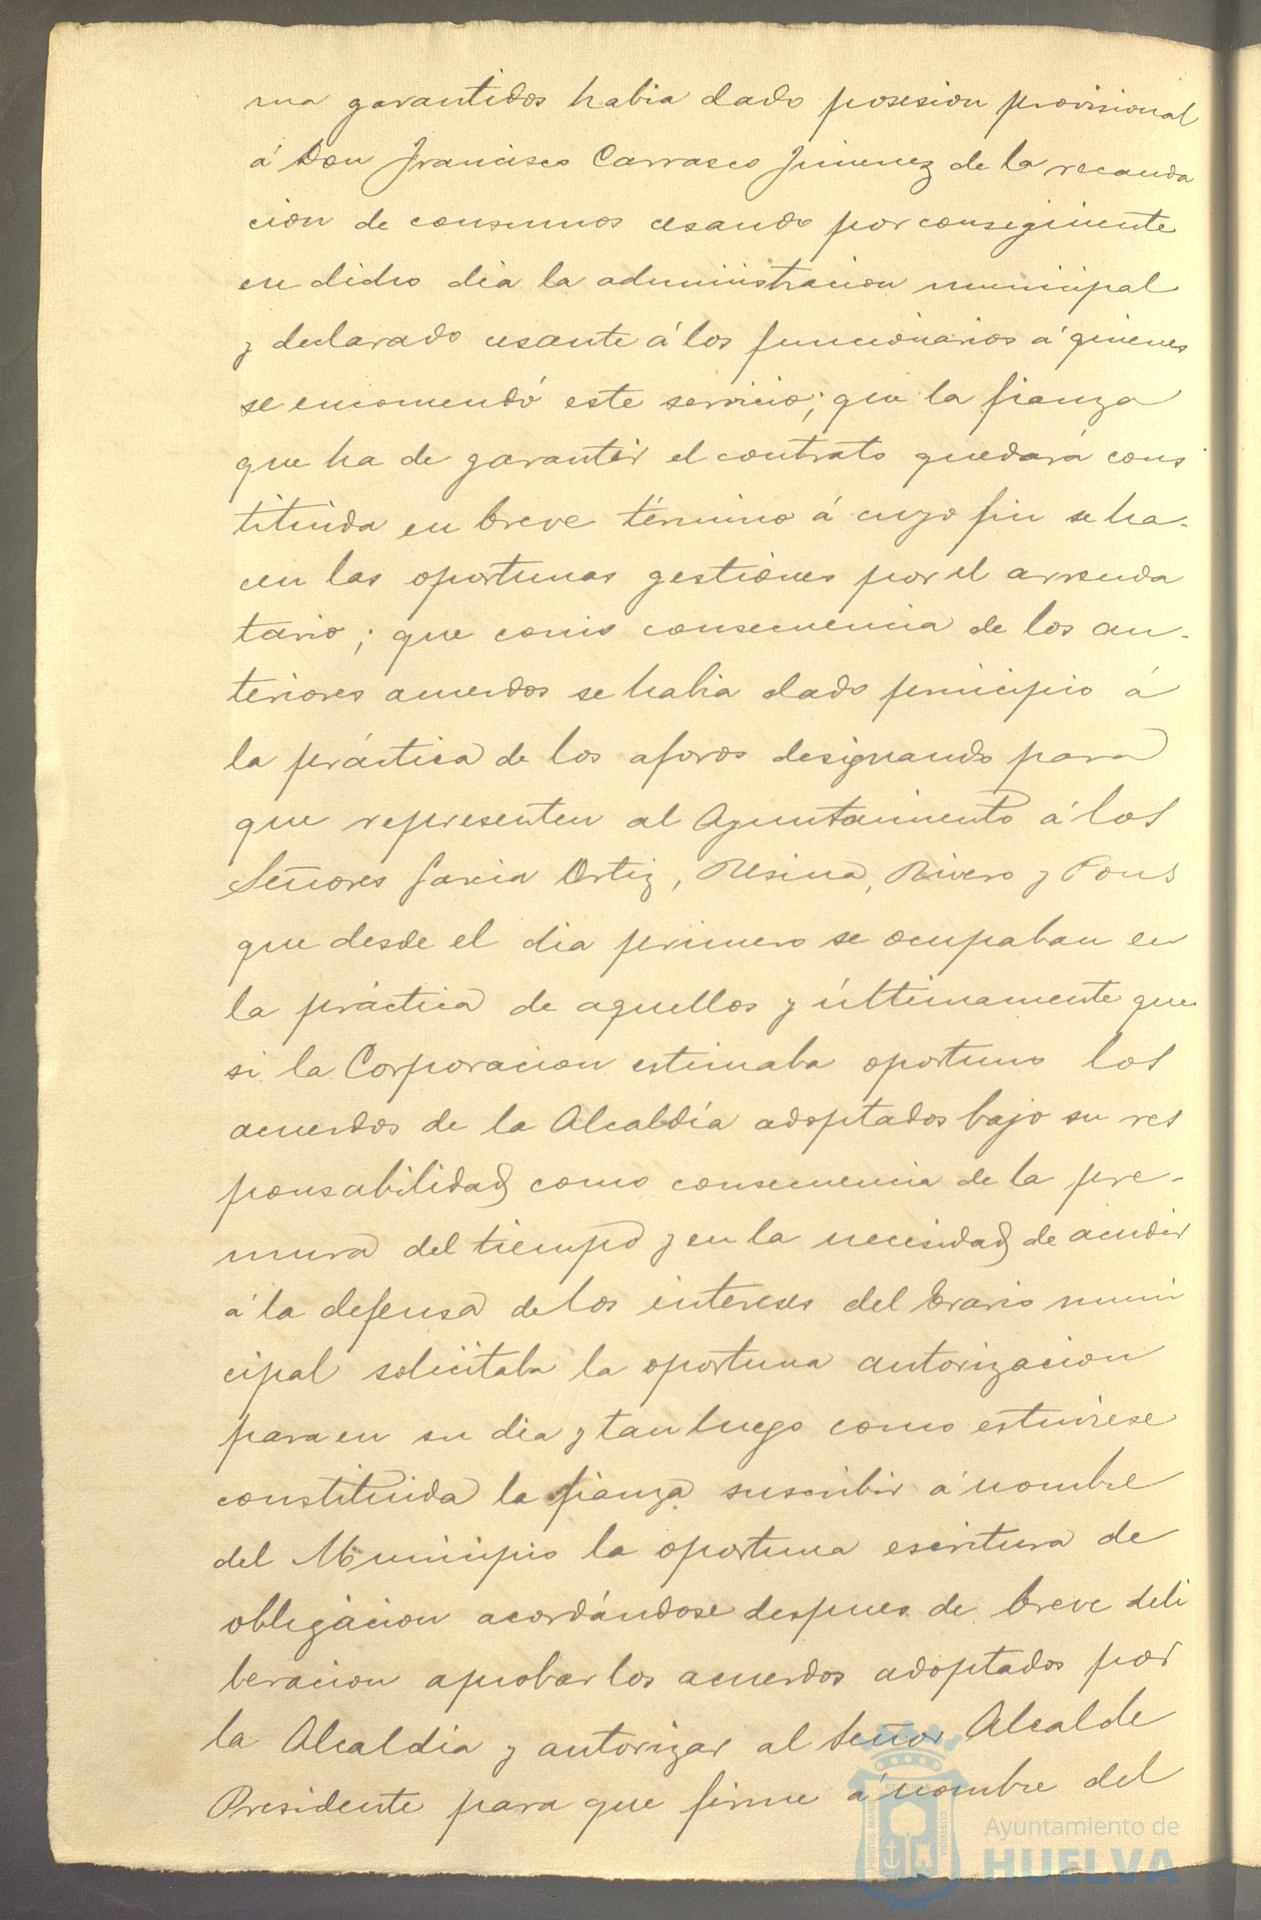 ma garantidos habia dado posesion provisional
á Don Francisco Carrasco Jimenez de la recauda
cion de consumos cesando por consiguiente
en dicho dia la administracion municipal
y declarado cesante á los funcionarios á quienes
se encomendó este servicio; que la fianza
que ha de garantir el contrato quedará cons
tituida en breve término á cuyo fin se ha-
cen las oportunas gestiones por el arrenda
tario; que como consecuencia de los an-
teriores acuerdos se habia dado principio á
la práctica de los aforos designando para
que representen al Ayuntamiento á los
Señores Garcia Ortiz, Resina, Rivero y Pons
que desde el dia primero se ocupaban en
la práctica de aquellos y últimamente que
si la Corporacion estimaba oportuno los
acuerdos de la Alcaldía adoptados bajo su res
ponsabilidad como consecuencia de la pre-
mura del tiempo y en la necesidad de acudir
á la defensa de los intereses del Erario muni
cipal solicitaba la oportuna autorizacion
para en su dia y tan luego como estuviese
constituida la fianza suscribir á nombre
del Municipio la oportuna escritura de
obligacion acordándose despues de breve deli
beracion aprobar los acuerdos adoptados por
la Alcaldia y autorizar al Señor Alcalde
Presidente para que firme á nombre del
Ayuntamiento de
HUELVA